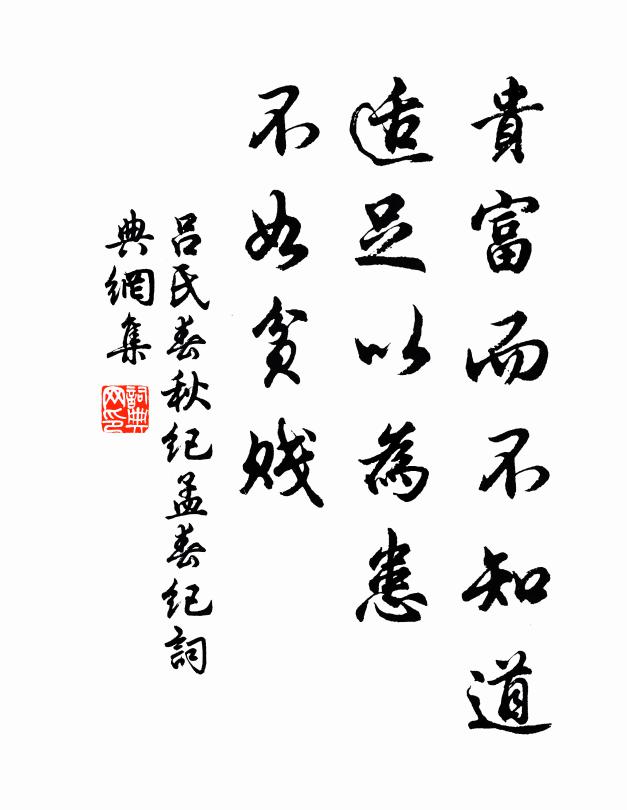 貴富而不知道
适足以為患
不如貧賤
吕氏春秋紀孟春紀詞
典網集
詞典网印